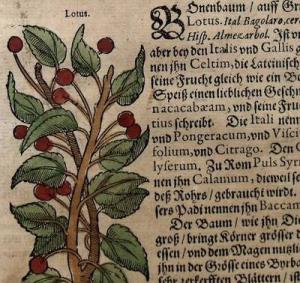 Lotus.
Bonenbaum / auff Gr
Lotus. Ital. Bagolaro, cer
Hisp. Almezarbol. Ist v
aber bey den Italis und Gallis
nen jhn Celtim, die Lateinisch
seine Frucht gleich wie ein B
Speiß einen lieblichen Geschm
nacacabæam, und seine Fru
tius schreibt. Die Itali nenn
und Pongeracum, und Viscif
folium, und Citrago. Den G
lyserum. Zu Rom Puls Syr
nen jhn Calamum, dieweil se
deß Rohrs / gebraucht wirdt.
sers Padi nennen jhn Baccam
Der Baum / wie jhn Dio
groß / bringt Körner grösser d
essen / und dem Magen nutzl
jhn in der Grösse eines Byrba
zerkerfften Blättern / ist